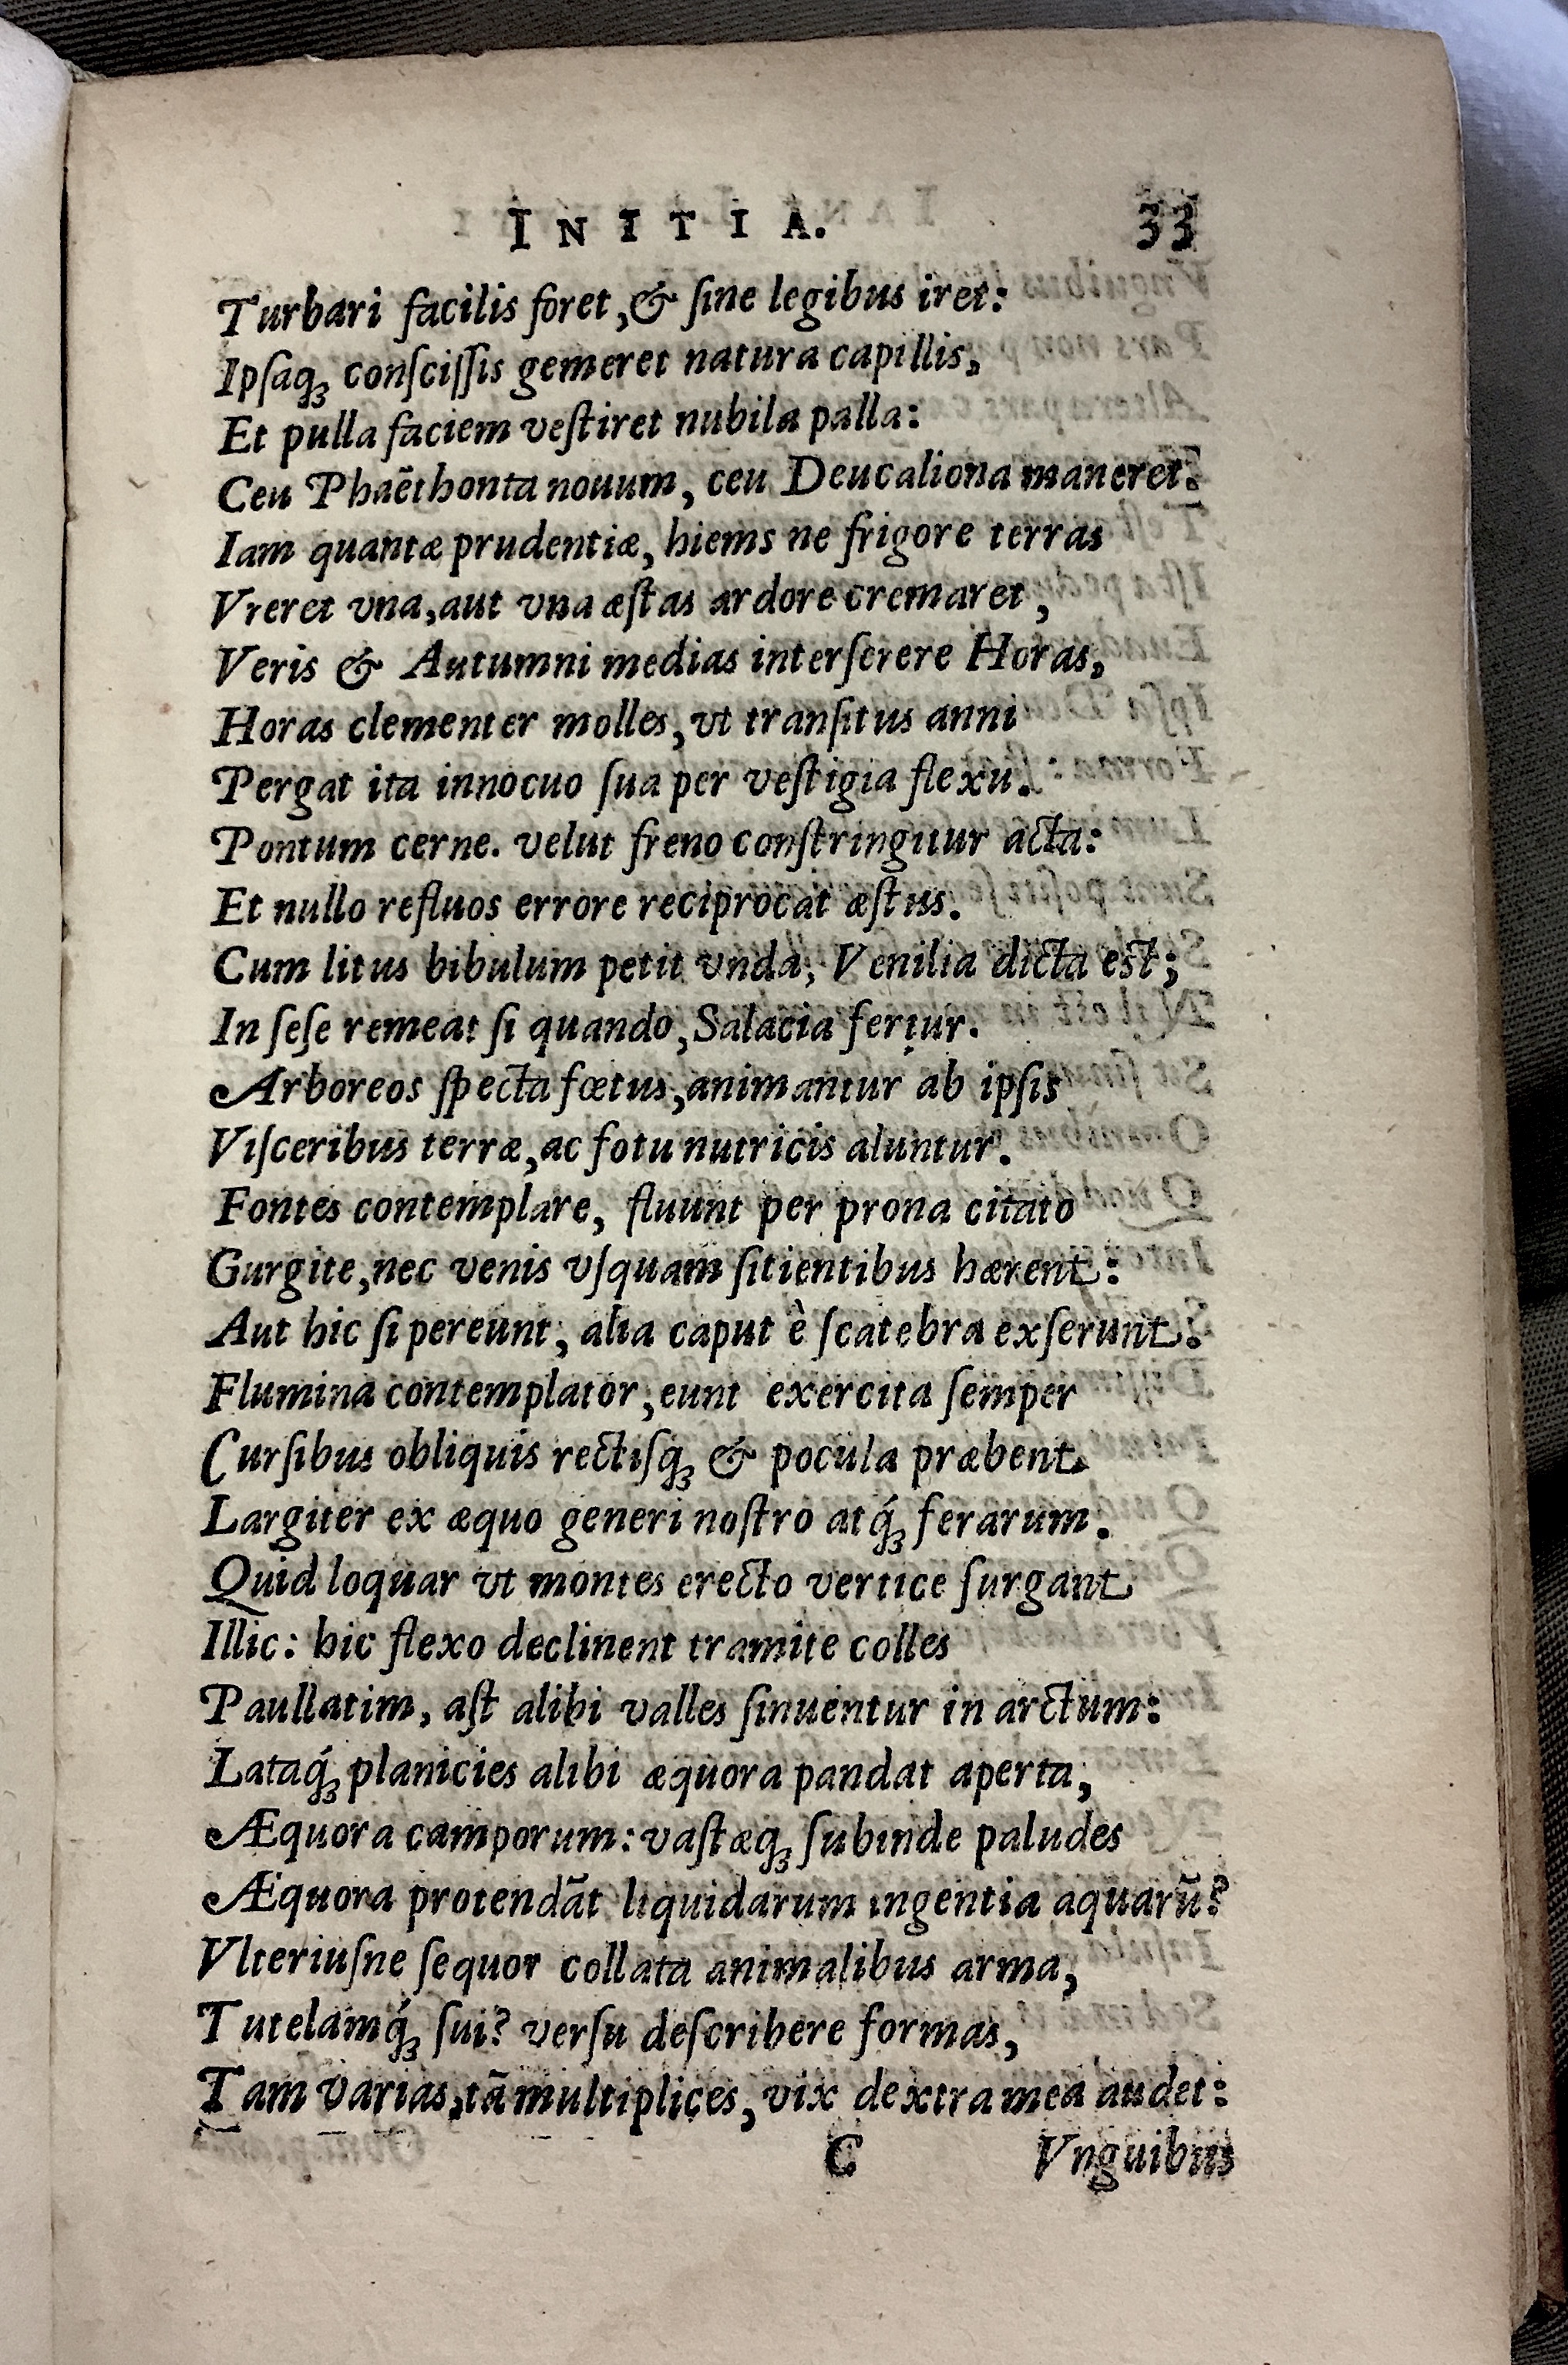 INITIA. 33
Turbari facilis foret, & ſine legibus iret:
Ipſaq́ꝫ conſciſſis gemeret natura capillis,
Et pulla faciem veſtiret nubila palla:
Ceu Phaëthonta nouum, ceu Deucaliona maneret.
Iam quantæ prudentiæ, hiems ne frigore terras
Vreret vna, aut vna æſtas ardore cremaret,
Veris & Autumni medias interſerere Horas,
Horas clementer molles, vt tranſitus anni
Pergat ita innocuo ſua per veſtigia flexu.
Pontum cerne. velut freno conſtringitur acta:
Et nullo refluos errore reciprocat æſtus.
Cum litus bibulum petit vnda, Venilia dicta est;
In ſeſe remeat ſi quando, Salacia fertur.
Arboreos ſpecta fœtus, animantur ab ipſis
Viſceribus terræ, ac fotu nutricis aluntur.
Fontes contemplare, fluunt per prona citato
Gurgite, nec venis vſquam ſitientibus hærent:
Aut hic ſi pereunt, alia caput è ſcatebra exſerunt.
Flumina contemplator, eunt exercita ſemper
Curſibus obliquis rectiſqꝫ & pocula præbent
Largiter ex æquo generi noſtro atq́ꝫ ferarum.
Quid loquar vt montes erecto vertice ſurgant
Illic: hic flexo declinent tramite colles
Paullatim, aſt alibi valles ſinuentur in arctum:
Lataq́ꝫ planicies alibi æquora pandat aperta,
Æquora camporum: vaſtæqꝫ ſubinde paludes
Æquora protendāt liquidarum ingentia aquarū?
Vlteriuſne ſequor collata animalibus arma,
Tutelamq́ꝫ ſui? verſu deſcribere formas,
Tam varias, tā multiplices, vix dextra mea audet:
C Vnguibus